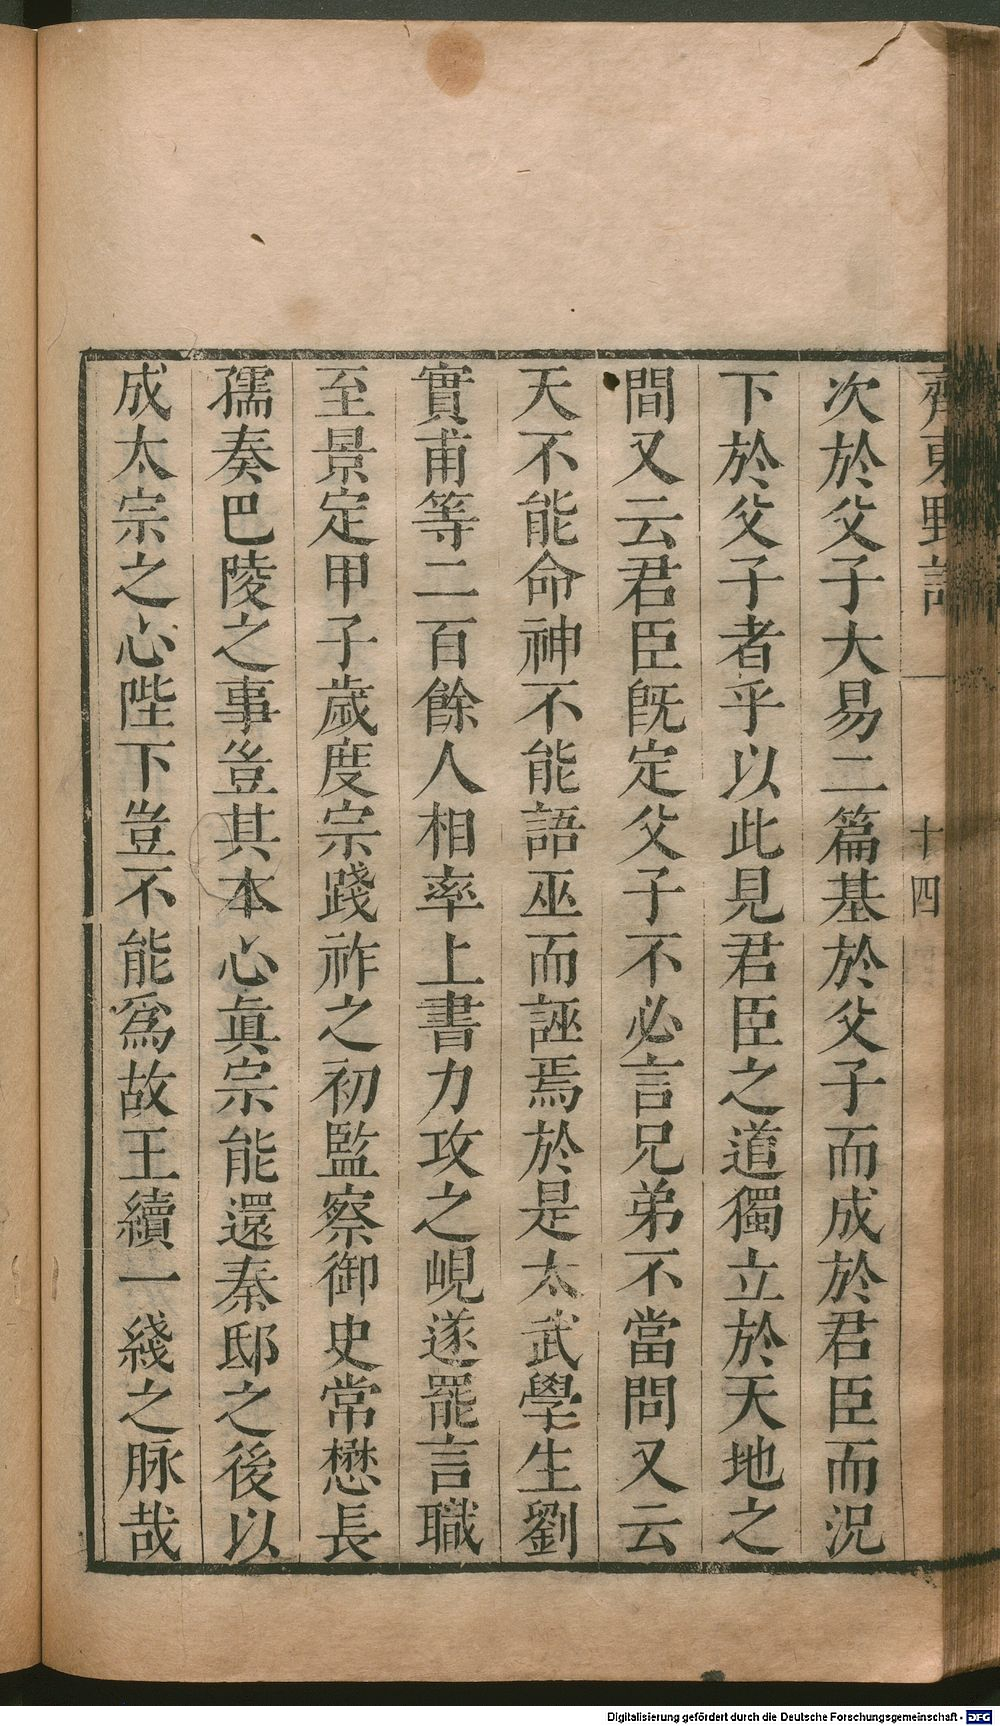 齊東野語
十四
次於父子大易二篇基於父子而成於君臣而況
下於父子者乎以此見君臣之道獨立於天地之
間又云君臣既定父子不必言兄弟不當問又云
天不能命神不能語巫而誣焉於是太武學生劉
實甫等二百餘人相率上書力攻之峴遂罷言職
至景定甲子歲度宗踐祚之初監察御史常懋長
孺奏巴陵之事豈其本心眞宗能還秦邸之後以
成太宗之心陛下豈不能爲故王續一綫之脉哉
Digitalisierung gefördert durch die Deutsche Forschungsgemeinschaft - DFG